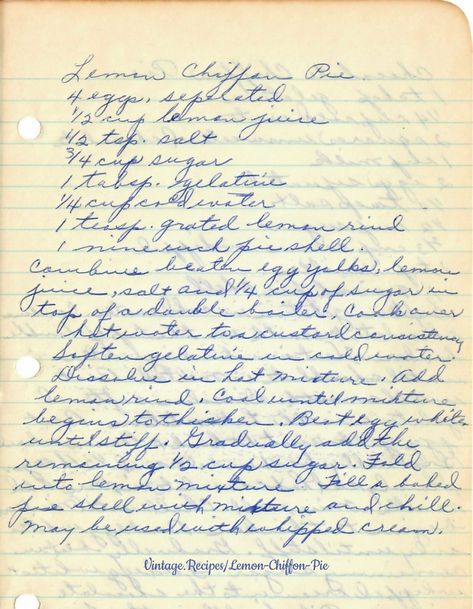 Lemon Chiffon Pie.
4 eggs, seperated
1/2 cup lemon juice
1/2 tsp. salt
3/4 cup sugar
1 tabsp. gelatine
1/4 cup cold water
1 teasp. grated lemon rind
1 nine inch pie shell.
Combine beaten egg yolks, lemon
juice, salt and 1/4 cup of sugar in
top of a double boiler. Cook over
hot water to a custard consistency
Soften gelatine in cold water.
Dissolve in hot mixture. Add
lemon rind. Cool until mixture
begins to thicken. Beat egg whites
until stiff. Gradually add the
remaining 1/2 cup sugar. Fold
into lemon mixture Fill a baked
pie shell with mixture and chill.
May be used with whipped cream.
Vintage.Recipes/Lemon-Chiffon-Pie